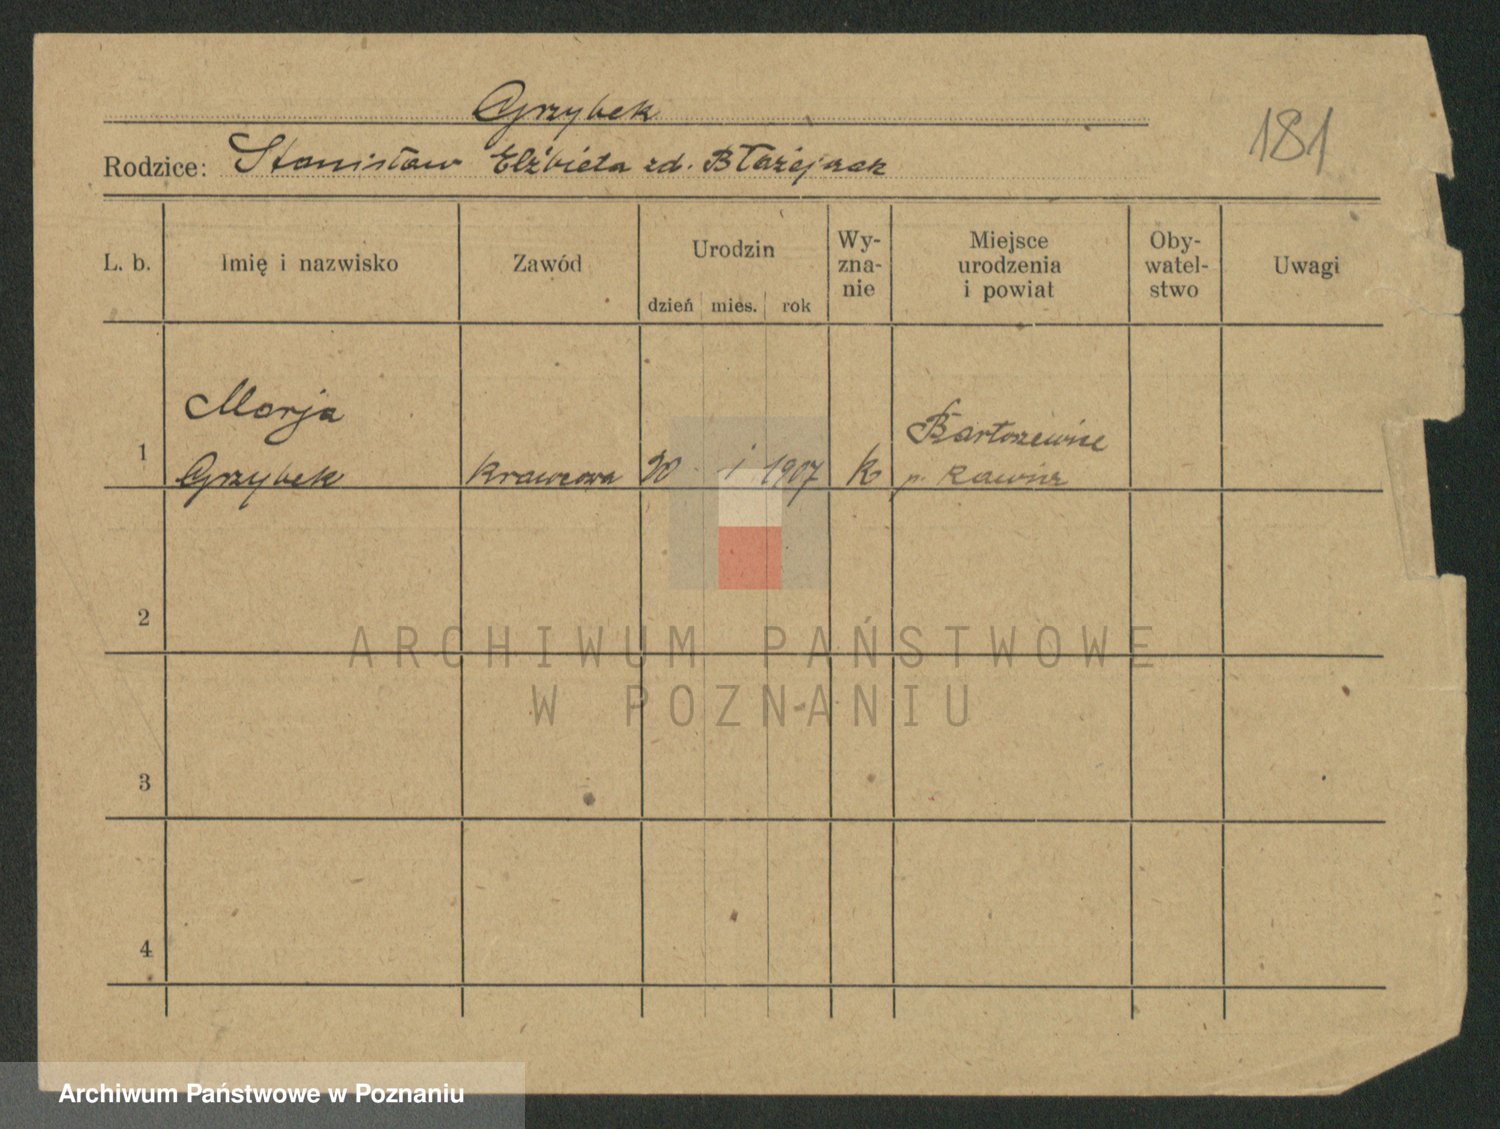 Grzybek
181
Rodzice: Stanisław Elżbieta zd. Błażejczak
L. b. Imię i nazwisko Zawód Urodzin dzień mies. rok Wy-zna-nie Miejsce urodzenia i powiat Oby-watel-stwo Uwagi
Marja Bartoszewice
1 Grzybek krawcowa 20 1 1907 k p. Rawicz
2
ARCHIWUM PAŃSTWOWE
W POZNANIU
3
4
Archiwum Państwowe w Poznaniu